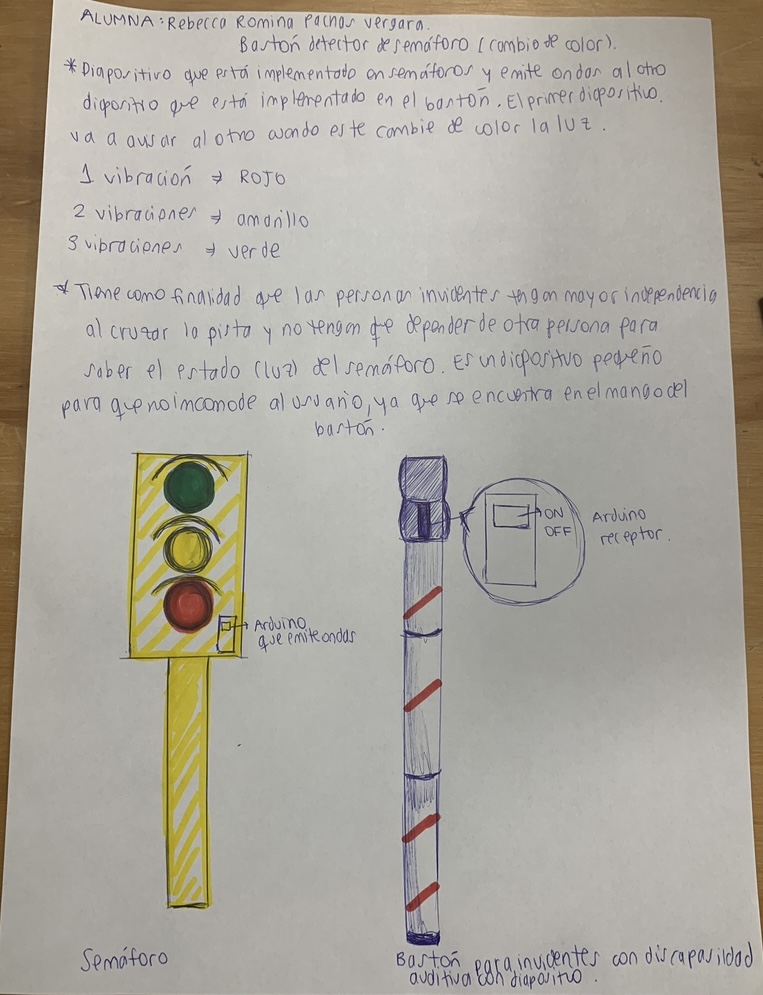 ALUMNA: Rebecca Romina Pachas Vergara.
Bastón detector de semáforo (cambio de color).
* Diapositivo que está implementado en semáforos y emite ondas al otro
dispositivo que está implementado en el bastón. El primer diapositivo.
va a avisar al otro cuando este cambie de color la luz.
1 vibración ⇒ ROJO
2 vibraciones ⇒ amarillo
3 vibraciones ⇒ verde
* Tiene como finalidad que las personas invidentes tengan mayor independencia
al cruzar la pista y no tengan que depender de otra persona para
saber el estado (luz) del semáforo. Es un dispositivo pequeño
para que no incomode al usuario, ya que se encuentra en el mango del
bastón.
ON
OFF
Arduino
receptor.
Arduino
que emite ondas
Semáforo
Bastón para invidentes con discapasidad
auditiva con diapositivo.